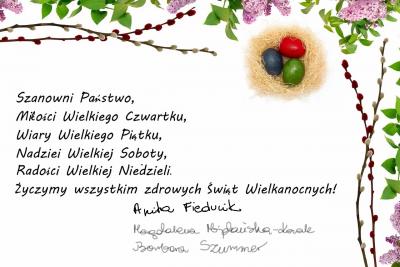 Szanowni Państwo,
Miłości Wielkiego Czwartku,
Wiary Wielkiego Piątku,
Nadziei Wielkiej Soboty,
Radości Wielkiej Niedzieli.
Życzymy wszystkim zdrowych Świąt Wielkanocnych!
Anita Fiedurik
Magdalena
Barbara Szummer